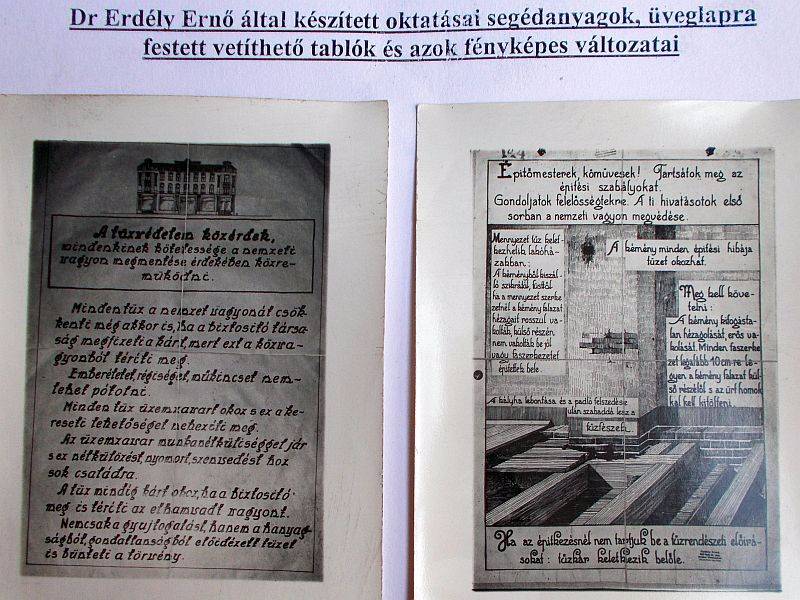 Dr Erdély Ernő által készített oktatásai segédanyagok, üveglapra
festett vetíthető tablók és azok fényképes változatai
A tűzvédelem közérdek,
mindenkinek kötelessége a nemzeti
vagyon megmentése érdekében közre-
működni.
Minden tűz a nemzet vagyonát csök-
kenti még akkor is, ha a biztosító társa-
ság megfizeti a kárt, mert ezt a közva-
gyonból téríti meg.
Emberéletet, régiséget, műkincset nem
lehet pótolni.
Minden tűz üzemzavart okoz s ez a ke-
reseti lehetőséget nehezíti meg.
Az üzemzavar munkanélküliséggel jár
s ez nélkülözést, nyomort, szenvedést hoz
sok családra.
A tűz mindig kárt okoz, ha a biztosító
meg is téríti az elhamvadt vagyont.
Nemcsak a gyujtogatást, hanem a hanyag-
ságból, gondatlanságból előidézett tüzet
is bünteti a törvény.
Építőmesterek, kőművesek! Tartsátok meg az
építési szabályokat.
Gondoljatok felelősségtekre. A ti hivatásotok első
sorban a nemzeti vagyon megvédése.
Mennyezet tűz kelet-
kezhetik lakóhá-
zakban:
A kéményből kiszál-
ló szikrától, füsttől
ha a mennyezet szerke
zetnél a kémény falazat
hézagait rosszul va-
kolták, külső részén
nem vakolták be jól
vagy faszerkezetet
építettek bele.
A kémény minden építési hibája
tüzet okozhat.
Meg kell köve-
telni:
A kémény kifogásta-
lan hézagolását, erős va-
kolását. Minden faszerke
zet legalább 10 cm-re le-
gyen a kémény falazat kül
ső részétől s az űrt homok
kal kell kitölteni.
A kályha lebontása és a padló felszedése
után szabaddá lesz a
tűzfészek.
Ha az építkezésnél nem tartjuk be a tűzrendészeti előírá-
sokat: tűzkár keletkezik belőle.